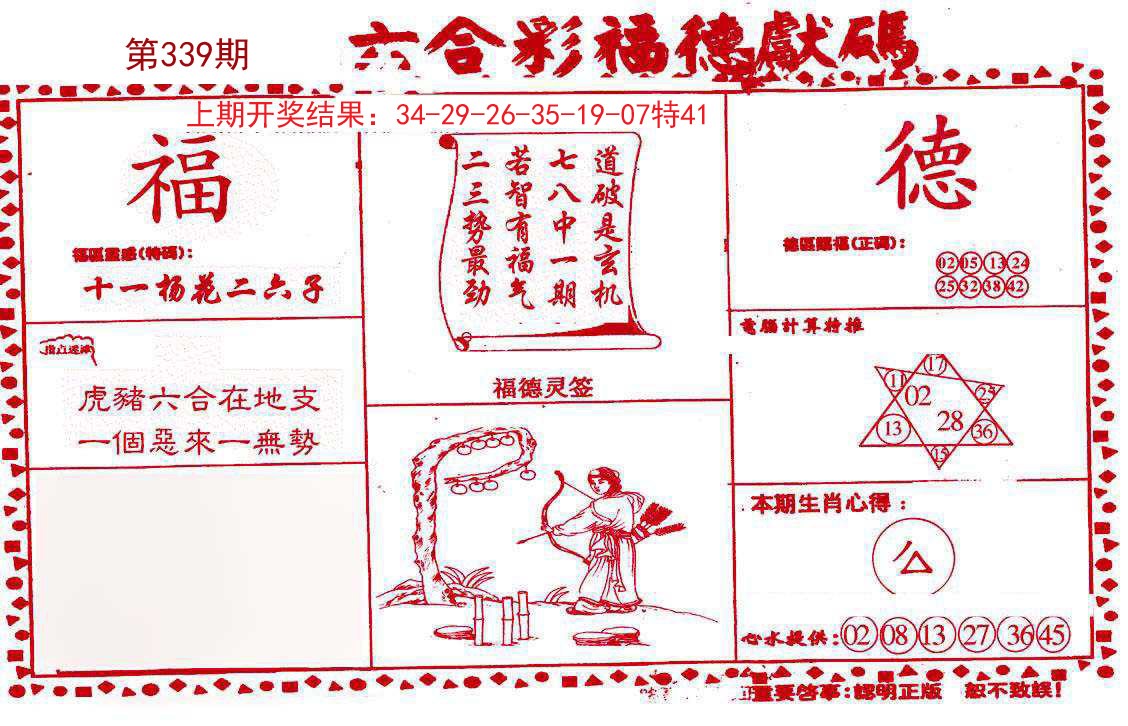 六合彩福德獻碼
第339期
上期开奖结果：34-29-26-35-19-07特41
福
福區靈感(特碼)：
十一杨花二六子
指直迷津
虎豬六合在地支
一個惡來一無勢
道破是玄机
七八中一期
若智有福气
二三势最劲
福德灵签
德
德區賜福(正碼)：
02 05 13 24
25 32 38 42
電腦計算特推
17
11 02 25
13 28 36
15
本期生肖心得：
心水提供：02 08 13 27 36 45
重要啓事：認明正版 恕不致誤！